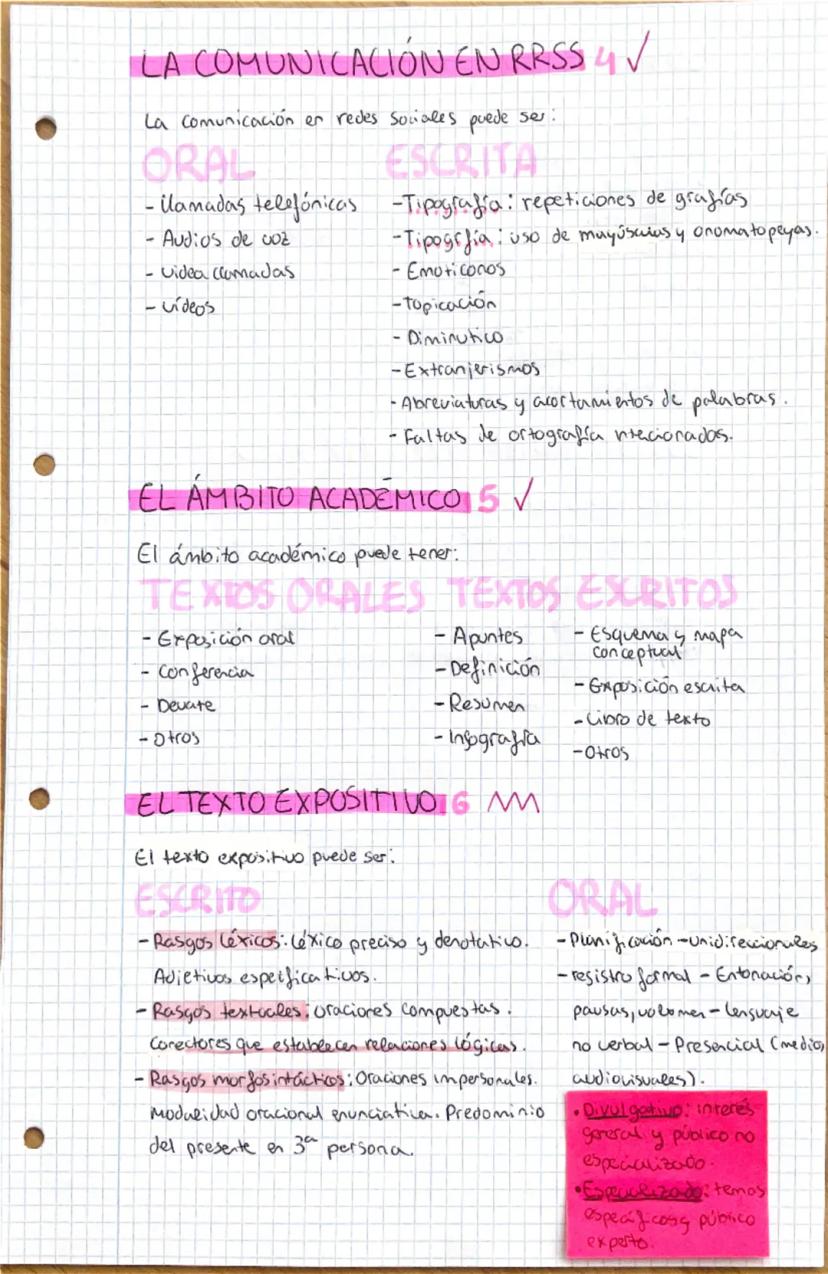 LA COMUNICACIÓN EN RRSS 4 ✓
La comunicación en redes sociales puede ser:
ORAL
- Llamadas telefónicas
- Audios de voz
- Videa llamadas
- vídeos
ESCRITA
- Tipografía: repeticiones de grafías
- Tipogrfía: uso de mayúsculas y onomatopeyas.
- Emoticonos
- topicación
- Diminutico
- Extranjerismos
- Abreviaturas y acortamientos de palabras.
- Faltas de ortografía ntecionadas.
EL ÁMBITO ACADÉMICO 5 ✓
El ámbito académico puede tener:
TEXTOS ORALES
- Exposición oral
- Conferencia
- Devate
- Otros
TEXTOS ESCRITOS
- Apuntes
- Definición
- Resumen
- Infografía
- Esquema y mapa
conceptual
- Exposición escrita
- Libro de texto
- Otros
EL TEXTO EXPOSITIVO 6
El texto expositivo puede ser:
ESCRITO
- Rasgos léxicos: léxico preciso y denotativo.
Adjetivos especificativos.
- Rasgos textuales: oraciones compuestas.
Conectores que establecen relaciones lógicas.
- Rasgos morfosintácticos: Oraciones impersonales.
Modalidad oracional enunciativa. Predominio
del presente en 3ª persona.
ORAL
- Planificación - unidireccionales
- registro formal - Entonación,
pausas, volumen - lenguaje
no verbal - Presencial (medios
audiovisuales).
• Divulgativo: interés
general y público no
especializado.
• Especializado: temas
específicos y público
experto.